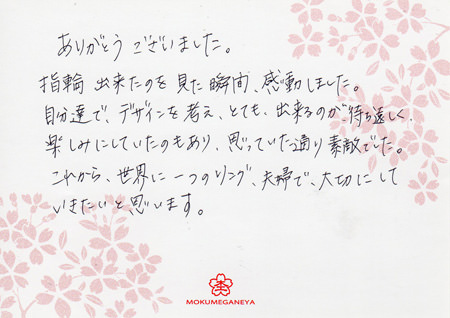 ありがとうございました。
指輪 出来たのを 見た 瞬間、感動しました。
自分達で、デザインを考え、とても、出来るのが、待ち遠しく、
楽しみにしていたのもあり、思っていた通り 素敵でした。
これから、世界に 一つのリング、夫婦で、大切にして
いきたいと思います。
MOKUMEGANEYA